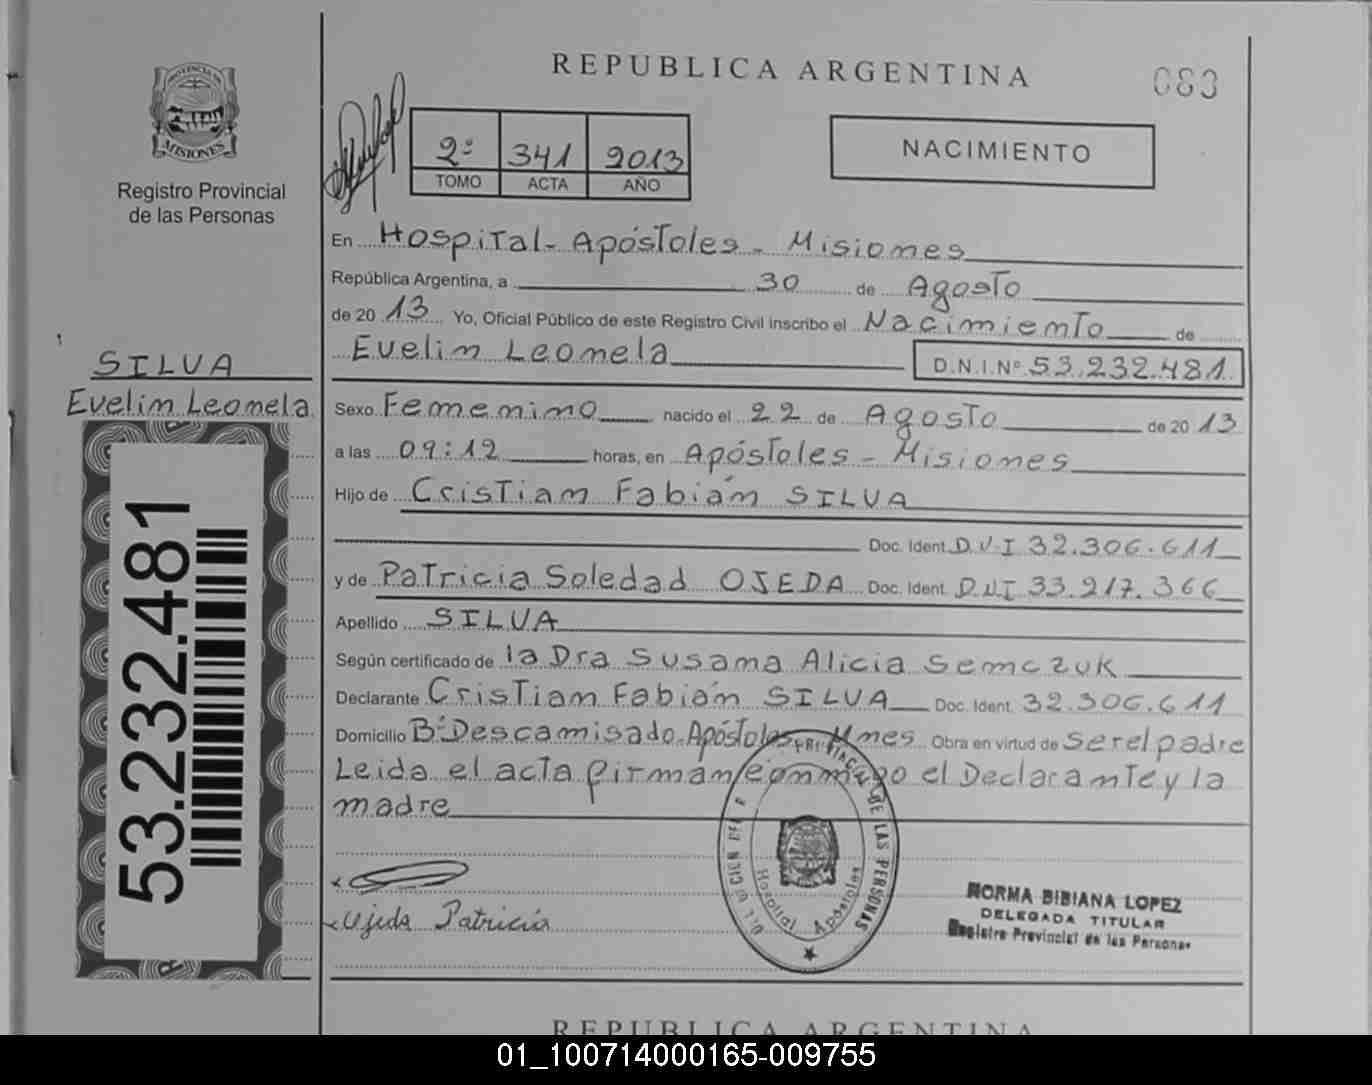 REPUBLICA ARGENTINA
083
PROVINCIA DE
MISIONES
Registro Provincial
de las Personas
2º 341 2013
TOMO ACTA AÑO
NACIMIENTO
En Hospital - Apóstoles - Misiones
República Argentina, a 30 de Agosto
de 20 13 Yo, Oficial Público de este Registro Civil inscribo el Nacimiento de
Evelin Leonela D.N.I.Nº 53.232.481
SILVA
Evelin Leonela
Sexo Femenino nacido el 22 de Agosto de 20 13
a las 09:12 horas, en Apóstoles - Misiones
Hijo de Cristian Fabián SILVA
Doc. Ident. D.N.I 32.306.611
y de Patricia Soledad OJEDA Doc. Ident. D.N.I 33.217.366
Apellido SILVA
Según certificado de la Dra Susana Alicia Semczuk
Declarante Cristian Fabián SILVA Doc. Ident. 32.306.611
Domicilio Bº Descamisado. Apóstoles Mnes Obra en virtud de ser el padre
Leida el acta firman conmigo el Declarante y la
madre
53.232.481
DE LAS PERSONAS
Hospital Apóstoles
Ojeda Patricia
NORMA BIBIANA LOPEZ
DELEGADA TITULAR
Registro Provincial de las Personas
REPUBLICA ARGENTINA
01_100714000165-009755